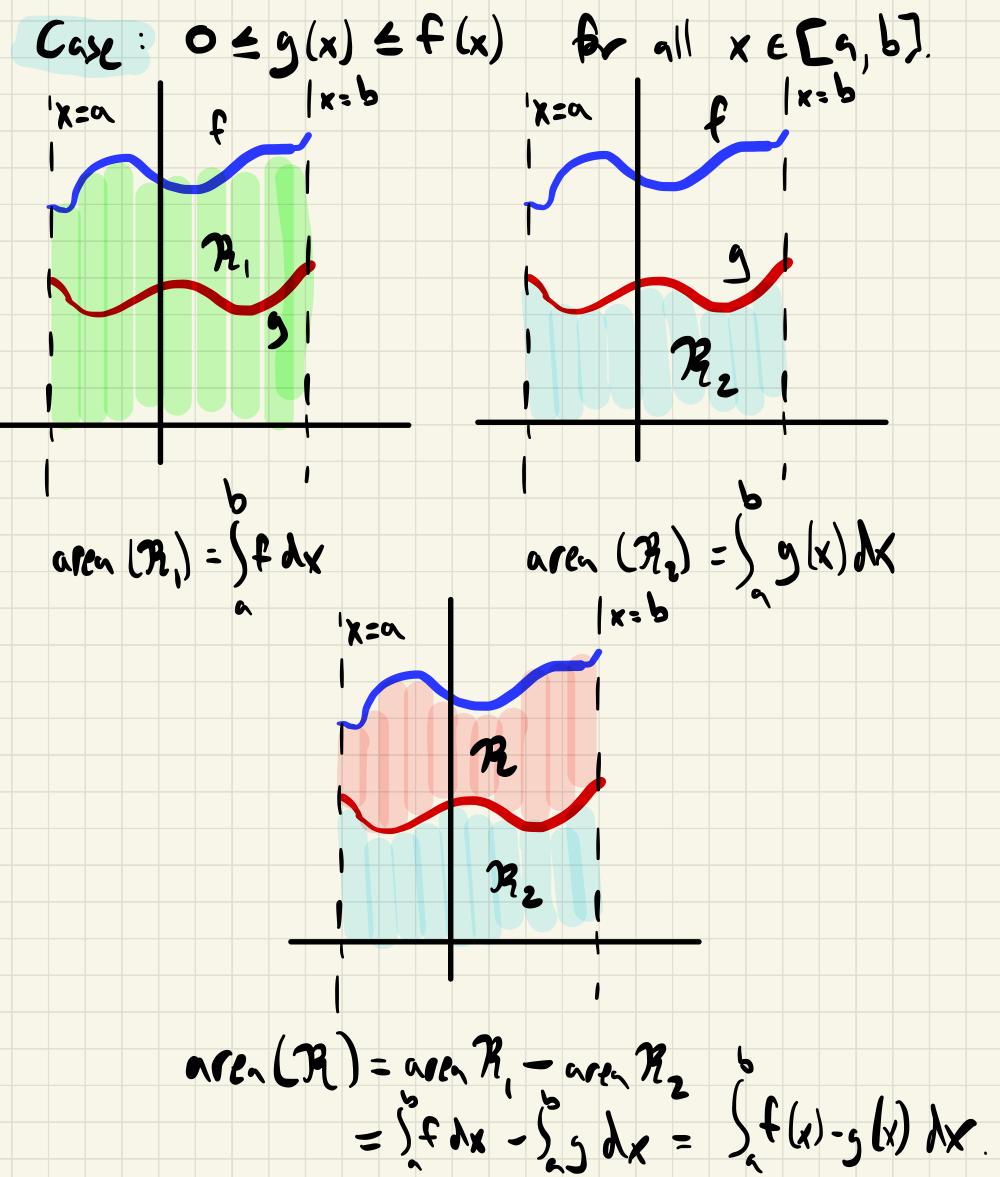 Case: 0 ≤ g(x) ≤ f(x) for all x ∈ [a, b].
x=a x=b x=a x=b
f f
R₁ g
g R₂
area (R₁) = ∫ₐᵇ f dx area (R₂) = ∫ₐᵇ g(x) dx
x=a x=b
R
R₂
area (R) = area R₁ − area R₂
= ∫ₐᵇ f dx − ∫ₐᵇ g dx = ∫ₐᵇ f(x) - g(x) dx.